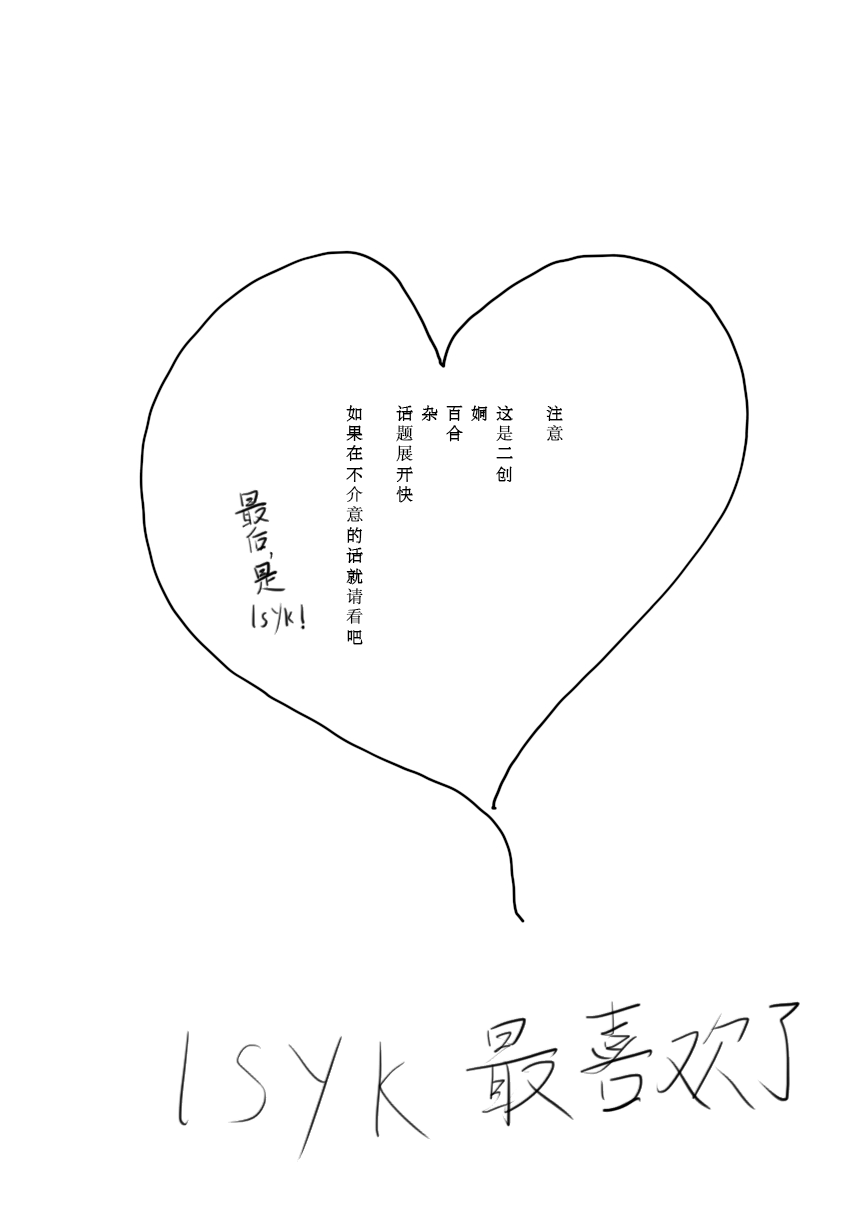 注意
这是二创
婀
百合
杂
话题展开快
如果在不介意的话就请看吧
最后,是
lsyk!
lsyk最喜欢了